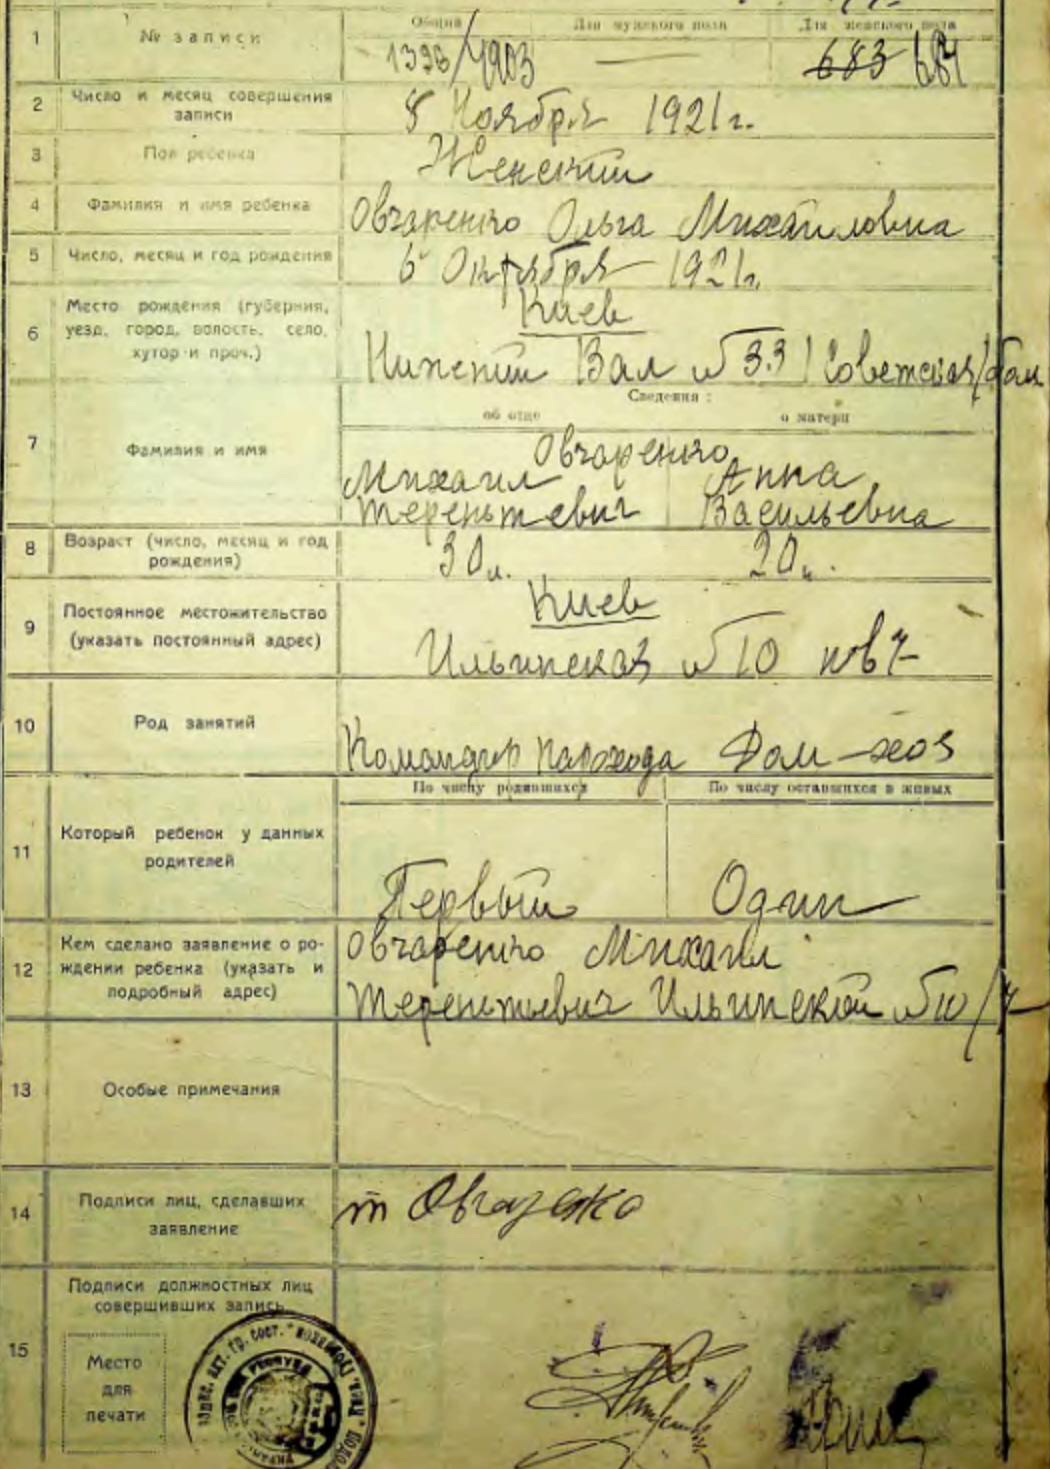 1 № записи Общий Для мужского пола Для женского пола
1396/1903 — 683 684
2 Число и месяц совершения
записи
8 Ноября 1921 г.
3 Пол ребенка Женский
4 Фамилия и имя ребенка Овчаренко Ольга Михайловна
5 Число, месяц и год рождения 6 Октября 1921 г.
6 Место рождения (губерния,
уезд, город, волость, село,
хутор и проч.)
Киев
Нижний Вал № 33 (Советская)
Сведения:
об отце о матери
7 Фамилия и имя
Овчаренко
Михаил Анна
Терентьевич Васильевна
8 Возраст (число, месяц и год
рождения)
30 л. 20 л.
9 Постоянное местожительство
(указать постоянный адрес)
Киев
Ильинская № 10 кв 7
10 Род занятий
Командир парохода Дом-хоз
По числу родившихся По числу оставшихся в живых
11 Который ребенок у данных
родителей
Первый Один
12 Кем сделано заявление о ро-
ждении ребенка (указать и
подробный адрес)
Овчаренко Михаил
Терентьевич Ильинской № 10/7
13 Особые примечания
14 Подписи лиц, сделавших
заявление
м Овчаренко
15 Подписи должностных лиц
совершивших запись
Место
для
печати